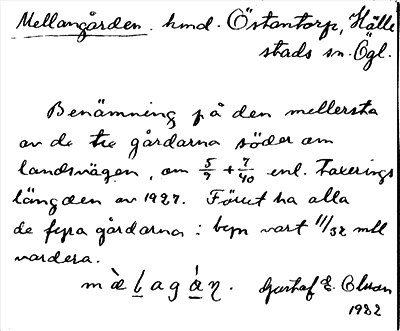 Mellangården. hmd. Östantorp, Hälle
stads sn. Ögl.
Benämning på den mellersta
av de tre gårdarna söder om
landsvägen, om 5/9 + 7/40 enl. taxerings
längden av 1927. Förut ha alla
de fyra gårdarna i byn vart 11/32 mtl
vardera.
Gustaf E. Olsson
1932